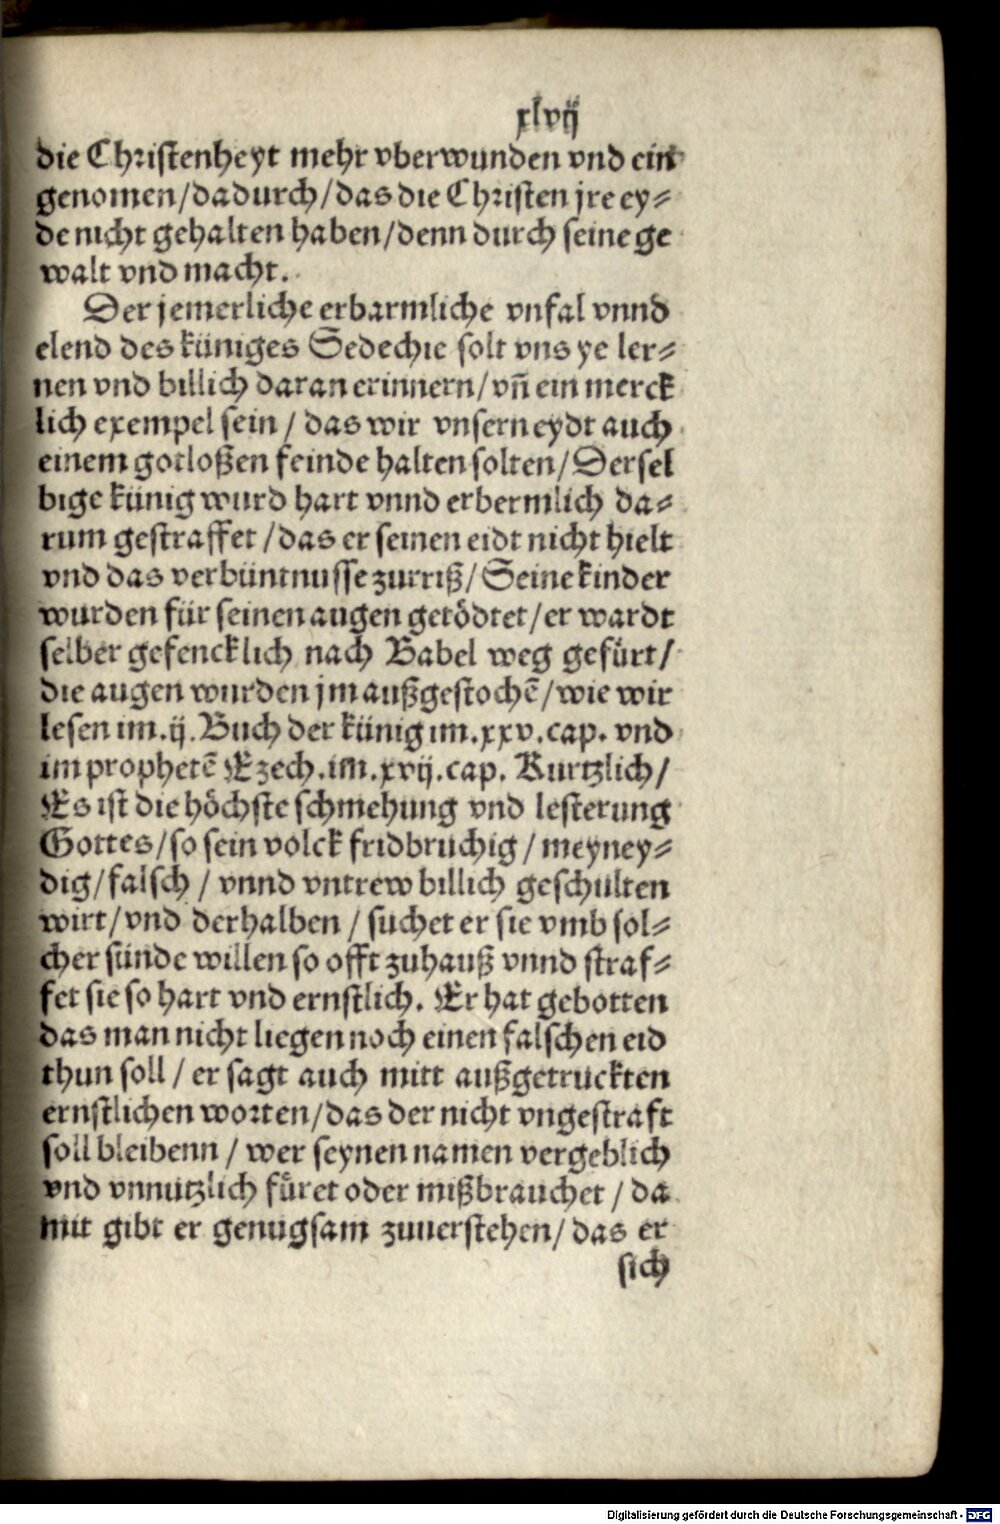 xlvij
die Christenheyt mehr vberwunden vnd ein
genomen/dadurch/das die Christen jre ey⸗
de nicht gehalten haben/denn durch seine ge
walt vnd macht.
Der jemerliche erbarmliche vnfal vnnd
elend des küniges Sedechie solt vns ye ler⸗
nen vnd billich daran erinnern/vñ ein merck
lich exempel sein / das wir vnsern eydt auch
einem gotloßen feinde halten solten/Dersel
bige künig wurd hart vnnd erbermlich da⸗
rum gestraffet /das er seinen eidt nicht hielt
vnd das verbüntnusse zurriß/Seine kinder
wurden für seinen augen getödtet/er wardt
selber gefencklich nach Babel weg gefürt/
die augen wurden jm außgestochē/wie wir
lesen im.ij.Buch der künig im.xxv.cap. vnd
im prophetē Ezech.im.xvij.cap. Kurtzlich/
Es ist die höchste schmehung vnd lesterung
Gottes/so sein volck fridbruchig / meyney⸗
dig/falsch / vnnd vntrew billich geschulten
wirt/vnd derhalben / suchet er sie vmb sol⸗
cher sünde willen so offt zuhauß vnnd straf⸗
fet sie so hart vnd ernstlich. Er hat gebotten
das man nicht liegen noch einen falschen eid
thun soll / er sagt auch mitt außgetruckten
ernstlichen worten/das der nicht vngestraft
soll bleibenn / wer seynen namen vergeblich
vnd vnnutzlich füret oder mißbrauchet / da
mit gibt er genugsam zuuerstehen/ das er
sich
Digitalisierung gefördert durch die Deutsche Forschungsgemeinschaft - DFG